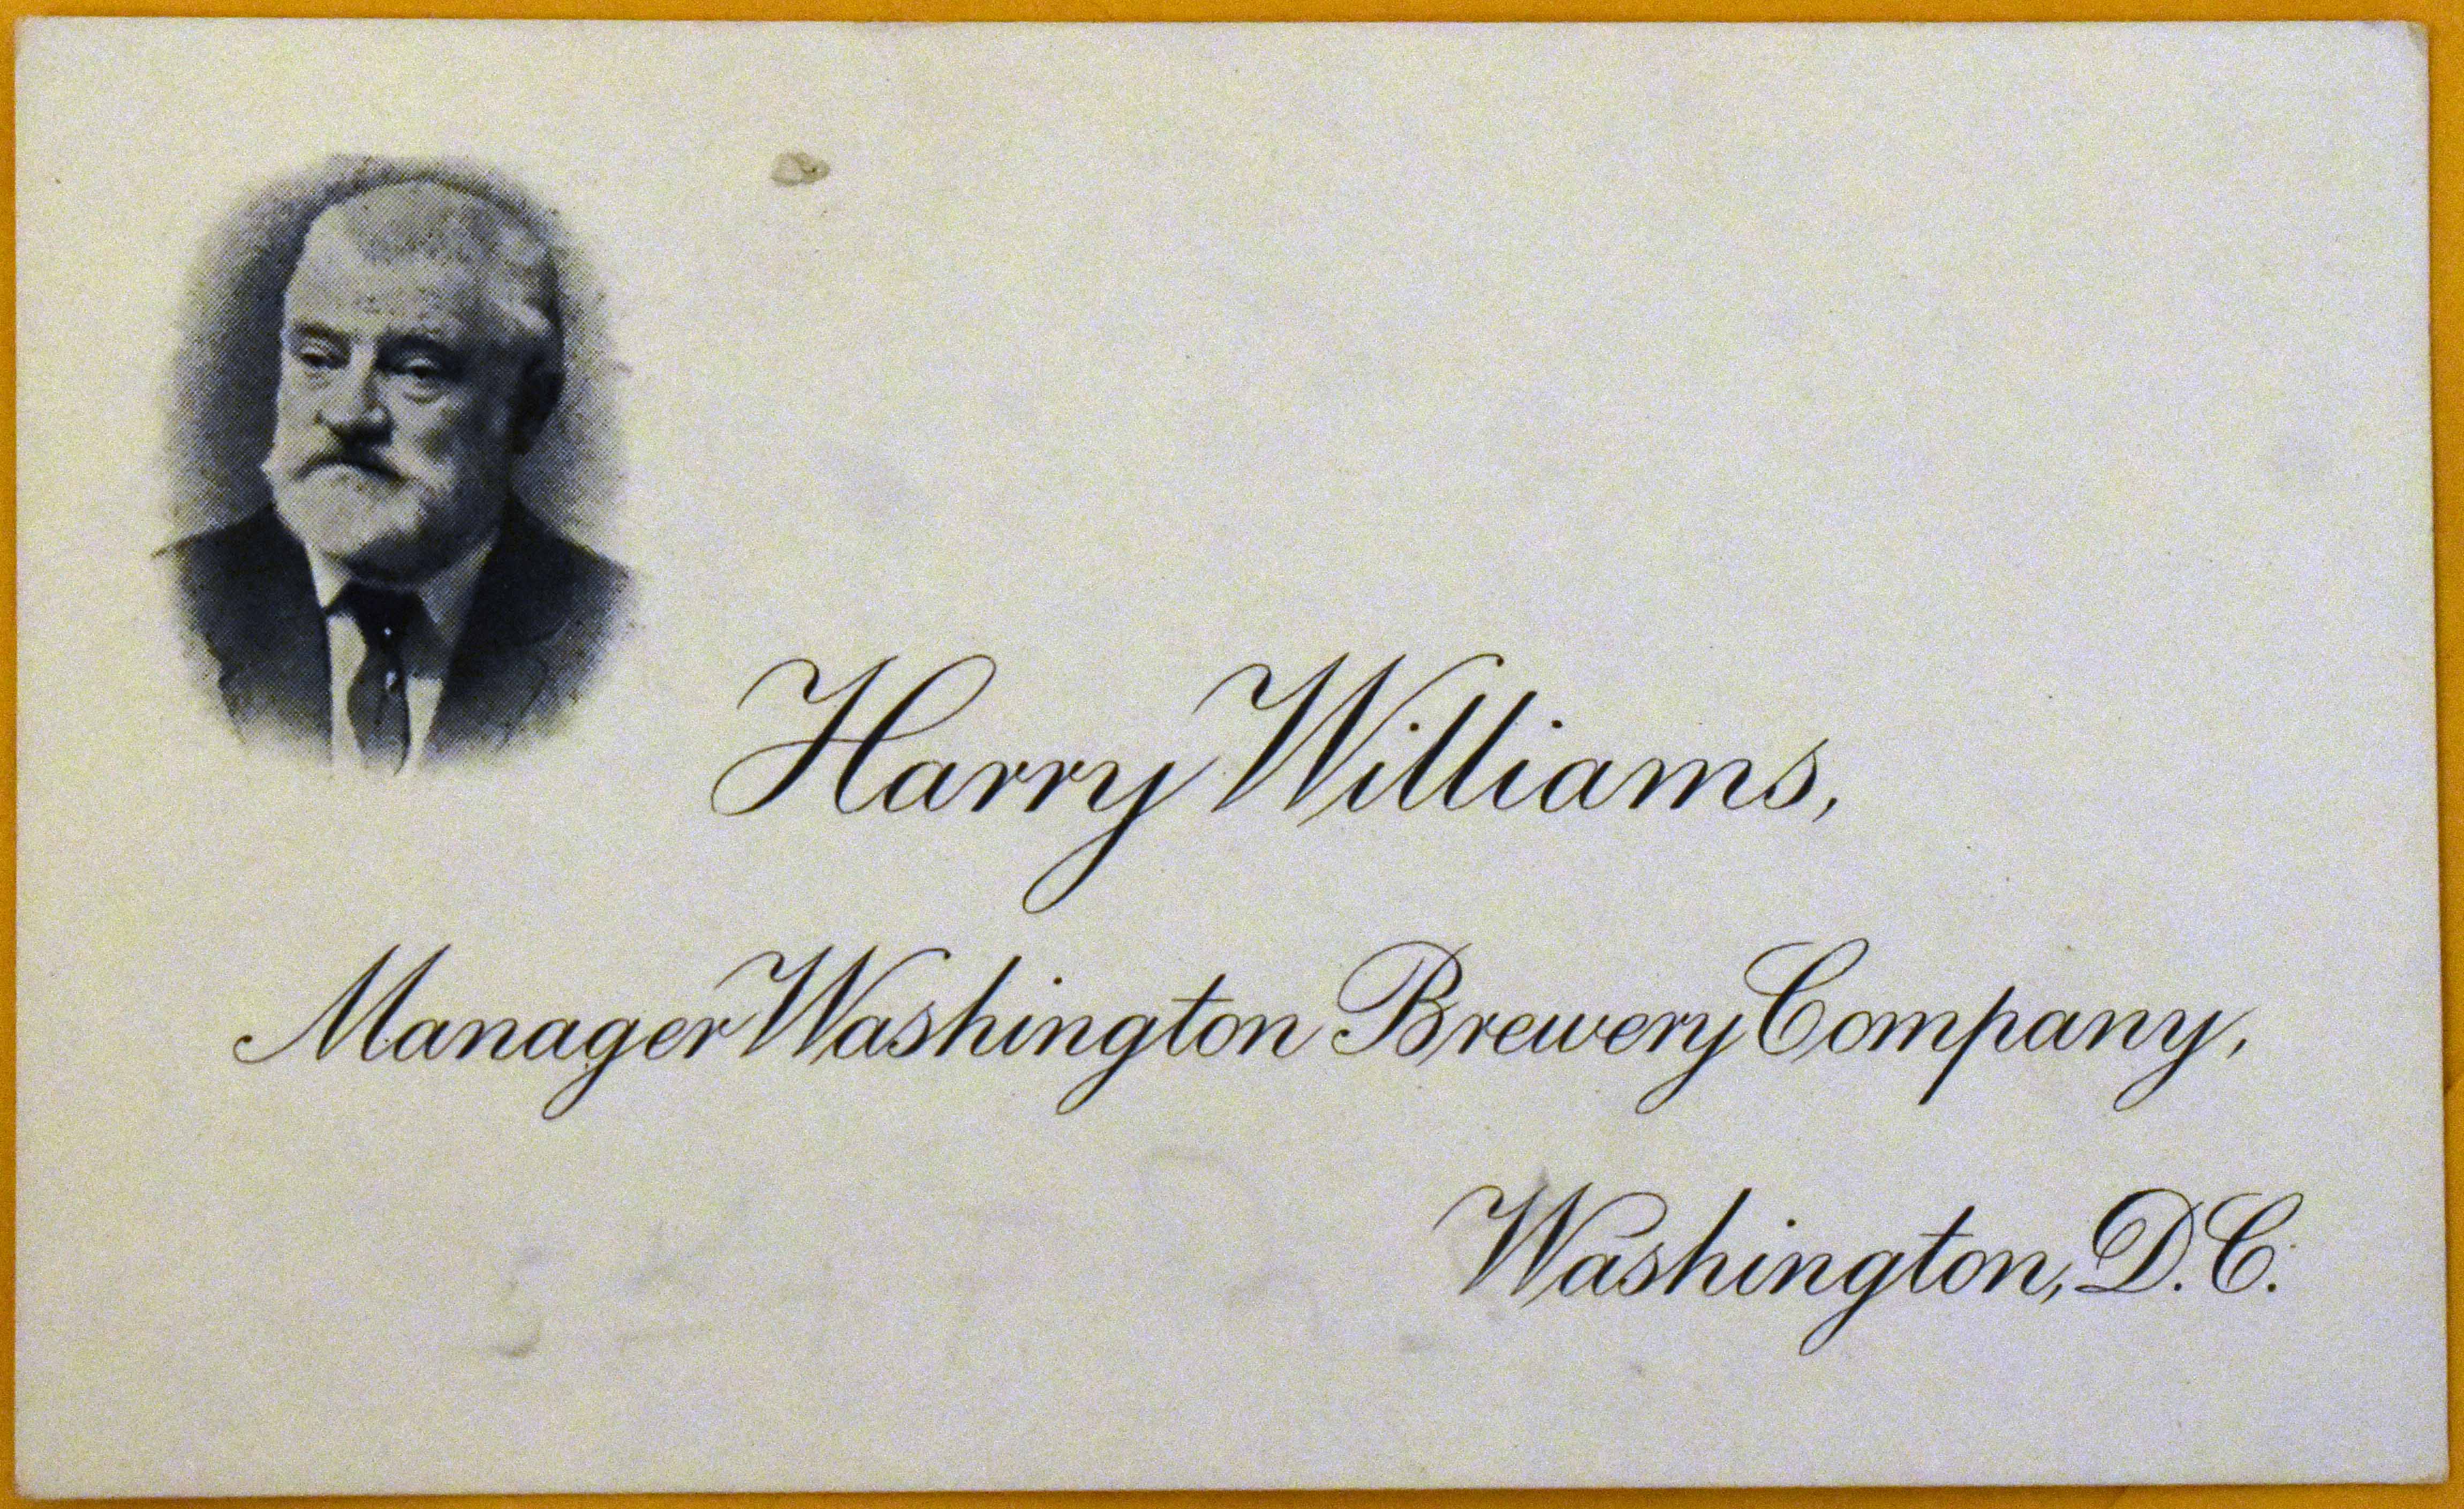 Harry Williams,
Manager Washington Brewery Company,
Washington, D.C.